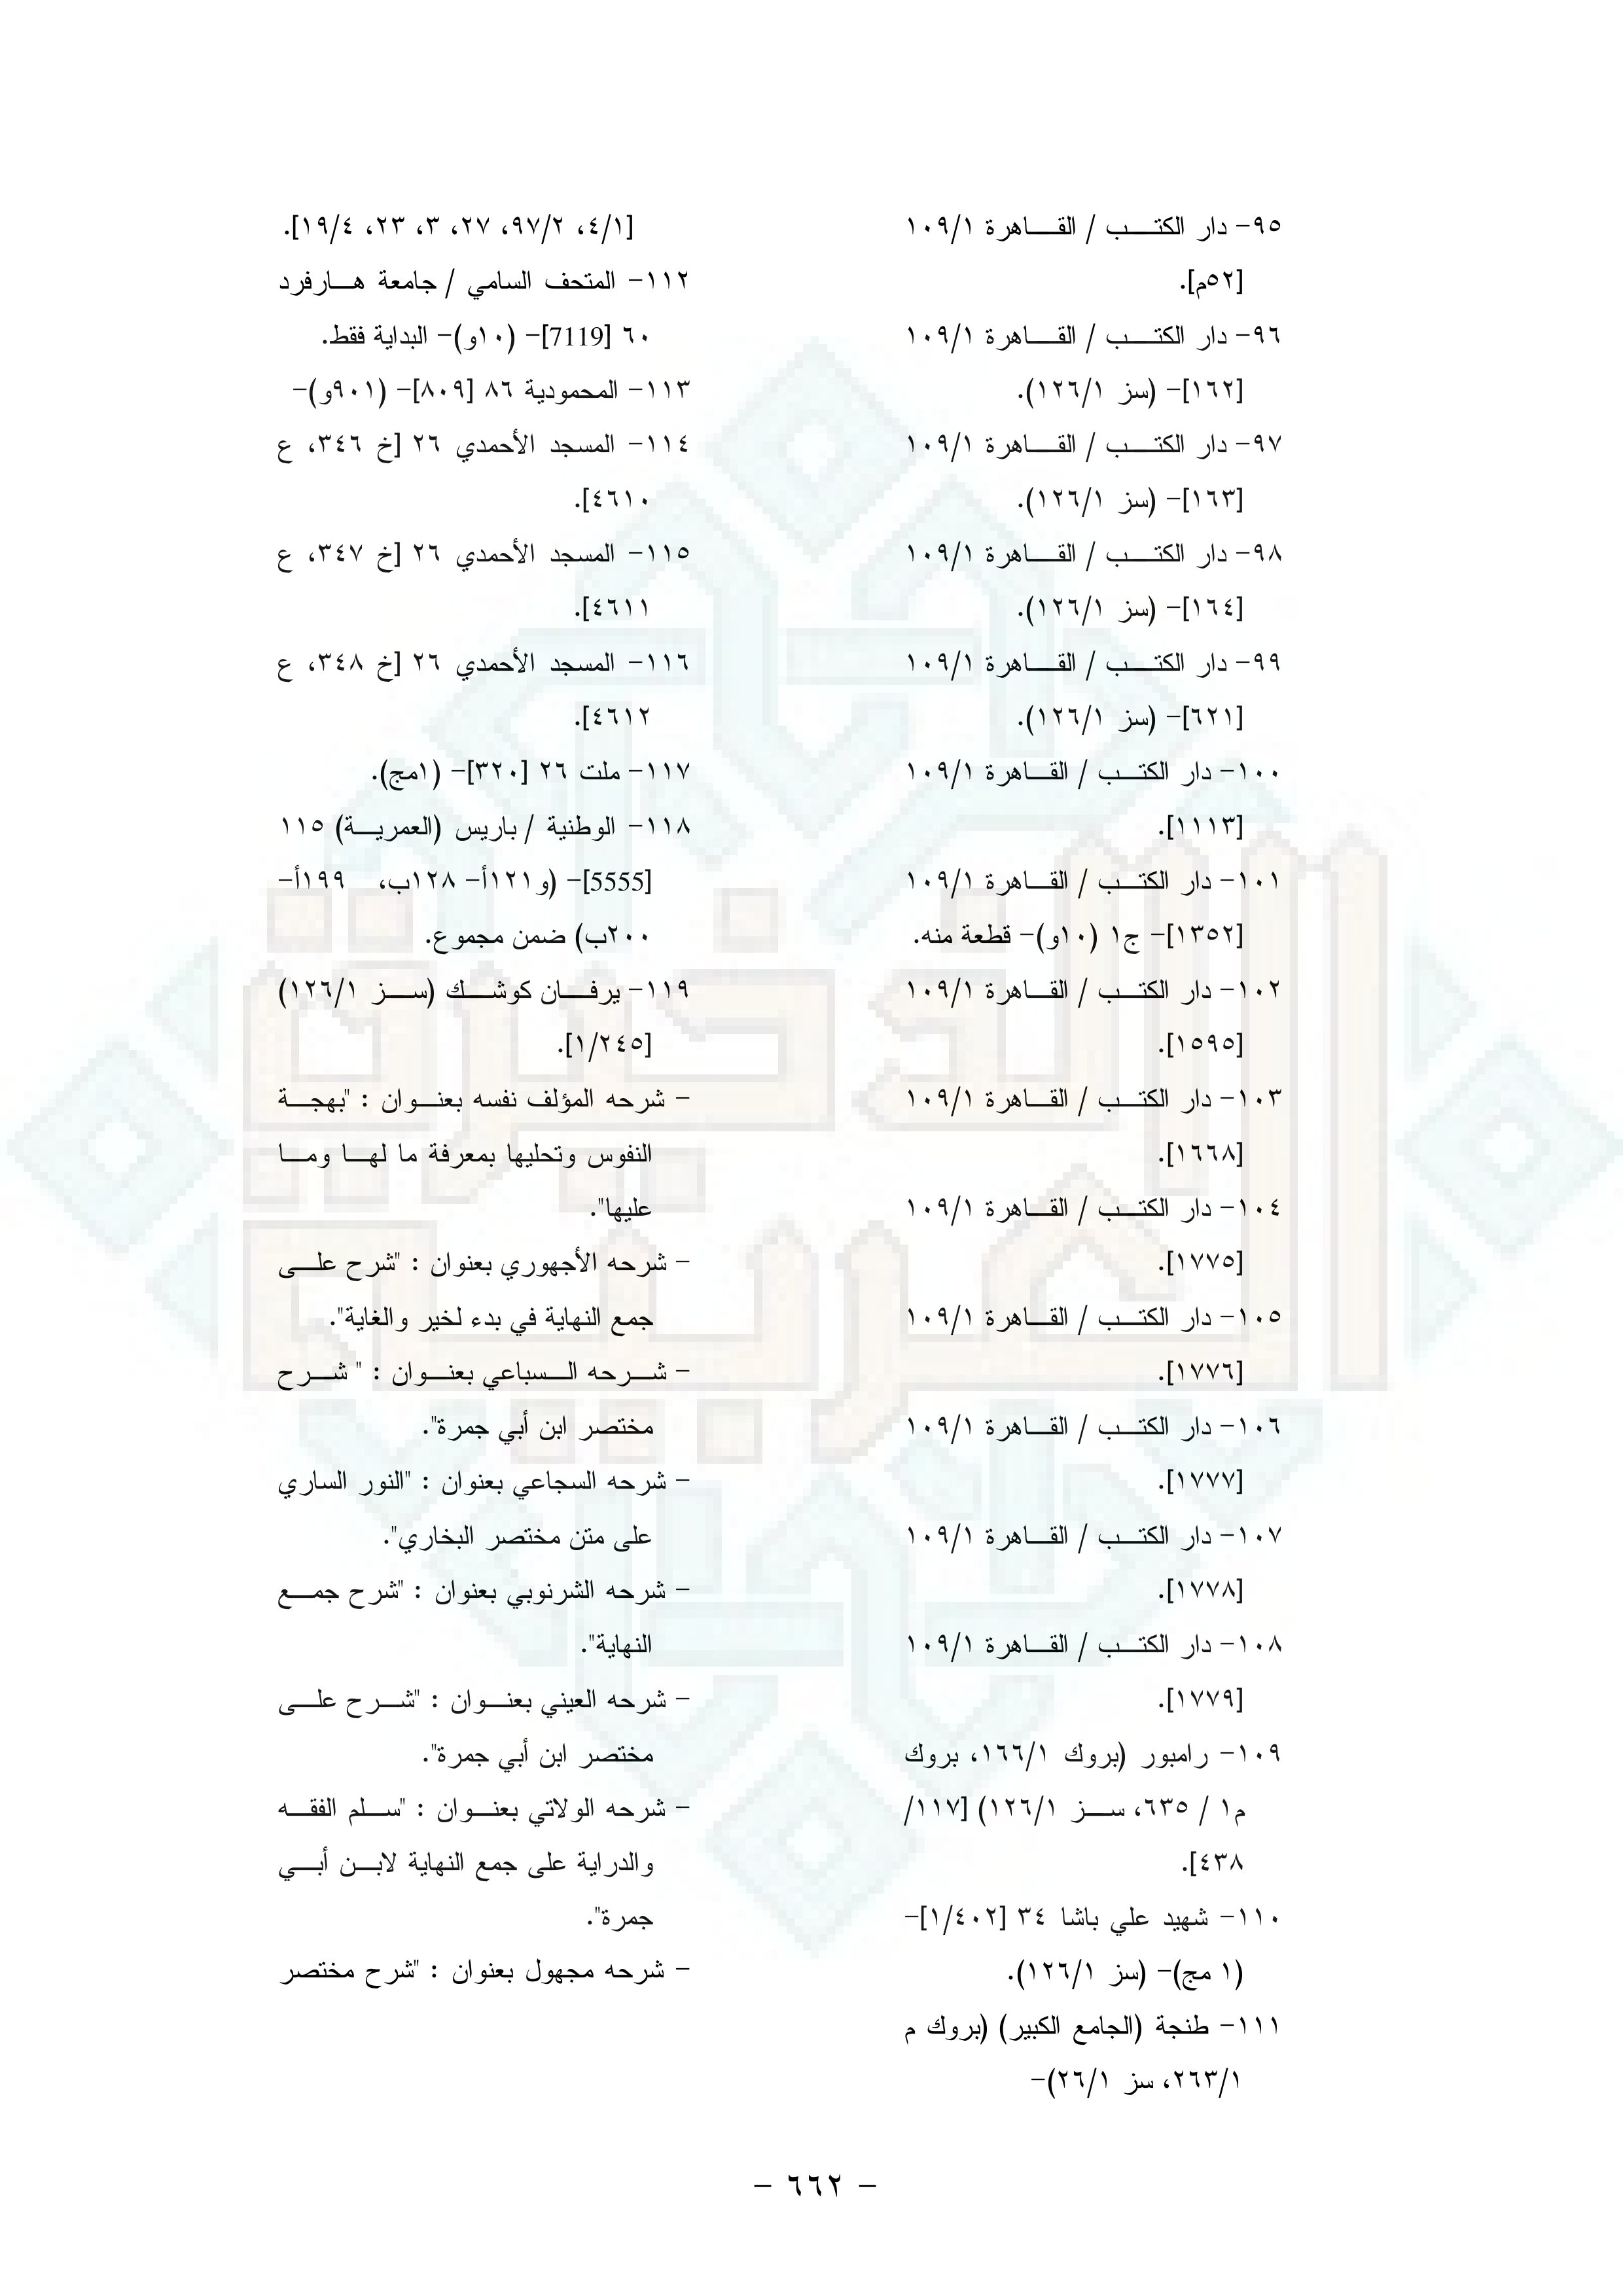 ٩٥- دار الكتب / القاهرة ١٠٩/١
[٥٢م].
٩٦- دار الكتب / القاهرة ١٠٩/١
[١٦٢]- (سز ١٢٦/١).
٩٧- دار الكتب / القاهرة ١٠٩/١
[١٦٣]- (سز ١٢٦/١).
٩٨- دار الكتب / القاهرة ١٠٩/١
[١٦٤]- (سز ١٢٦/١).
٩٩- دار الكتب / القاهرة ١٠٩/١
[٦٢١]- (سز ١٢٦/١).
١٠٠- دار الكتب / القاهرة ١٠٩/١
[١١١٣].
١٠١- دار الكتب / القاهرة ١٠٩/١
[١٣٥٢]- ج١ (١٠و)- قطعة منه.
١٠٢- دار الكتب / القاهرة ١٠٩/١
[١٥٩٥].
١٠٣- دار الكتب / القاهرة ١٠٩/١
[١٦٦٨].
١٠٤- دار الكتب / القاهرة ١٠٩/١
[١٧٧٥].
١٠٥- دار الكتب / القاهرة ١٠٩/١
[١٧٧٦].
١٠٦- دار الكتب / القاهرة ١٠٩/١
[١٧٧٧].
١٠٧- دار الكتب / القاهرة ١٠٩/١
[١٧٧٨].
١٠٨- دار الكتب / القاهرة ١٠٩/١
[١٧٧٩].
١٠٩- رامبور (بروك ١٦٦/١، بروك
م١ / ٦٣٥، سز ١٢٦/١) [١١٧/
٤٣٨].
١١٠- شهيد علي باشا ٣٤ [١/٤٠٢]-
(١ مج)- (سز ١٢٦/١).
١١١- طنجة (الجامع الكبير) (بروك م
٢٦٣/١، سز ٢٦/١)-
[٤/١، ٩٧/٢، ٢٧، ٣، ٢٣، ١٩/٤].
١١٢- المتحف السامي / جامعة هارفرد
٦٠ [7119]- (١٠و)- البداية فقط.
١١٣- المحمودية ٨٦ [٨٠٩]- (٩٠١و)-
١١٤- المسجد الأحمدي ٢٦ [خ ٣٤٦، ع
٤٦١٠].
١١٥- المسجد الأحمدي ٢٦ [خ ٣٤٧، ع
٤٦١١].
١١٦- المسجد الأحمدي ٢٦ [خ ٣٤٨، ع
٤٦١٢].
١١٧- ملت ٢٦ [٣٢٠]- (١مج).
١١٨- الوطنية / باريس (العمرية) ١١٥
[5555]- (و١٢١أ- ١٢٨ب، ١٩٩أ-
٢٠٠ب) ضمن مجموع.
١١٩- يرفان كوشك (سز ١٢٦/١)
[١/٢٤٥].
- شرحه المؤلف نفسه بعنوان : "بهجة
النفوس وتحليها بمعرفة ما لها وما
عليها".
- شرحه الأجهوري بعنوان : "شرح على
جمع النهاية في بدء لخير والغاية".
- شرحه السباعي بعنوان : " شرح
مختصر ابن أبي جمرة".
- شرحه السجاعي بعنوان : "النور الساري
على متن مختصر البخاري".
- شرحه الشرنوبي بعنوان : "شرح جمع
النهاية".
- شرحه العيني بعنوان : "شرح على
مختصر ابن أبي جمرة".
- شرحه الولاتي بعنوان : "سلم الفقه
والدراية على جمع النهاية لابن أبي
جمرة".
- شرحه مجهول بعنوان : "شرح مختصر
- ٦٦٢ -
الذخيرة
العربية